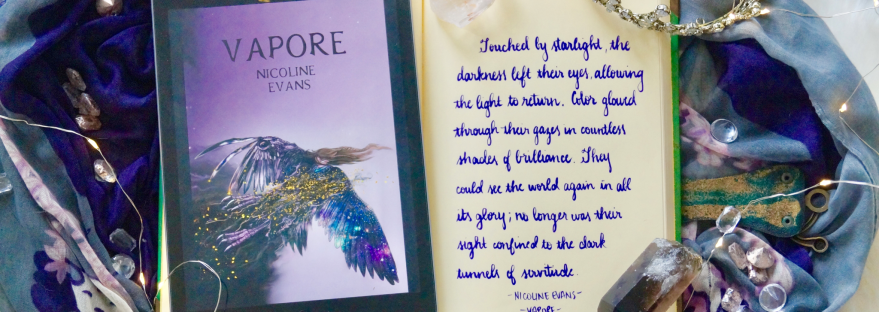 VAPORE
NICOLINE
EVANS
Touched by starlight, the
darkness left their eyes, allowing
the light to return. Color glowed
through their gazes in countless
shades of brilliance. They
could see the world again in all
its glory; no longer was their
sight confined to the dark
tunnels of servitude.
-NICOLINE EVANS-
-VAPORE-